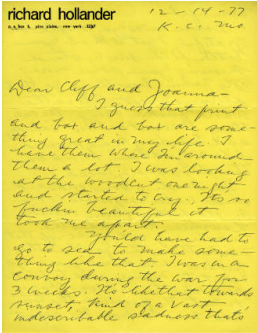 richard hollander
pine plains, new york
12-14-77
K.C. Mo
Dear Cliff and Joanna -
I guess that print
and box and box are some-
thing great in my life. I
have them where I'm around
them a lot. I was looking
at the woodcut one night
and started to cry. Its so
fuckin beautiful it
took me apart.
You'd have had to
go to sea to make some-
thing like that. I was in a
convoy during the war for
3 weeks. It's like that towards
sunset, kind of a vast
indescribable sadness that's